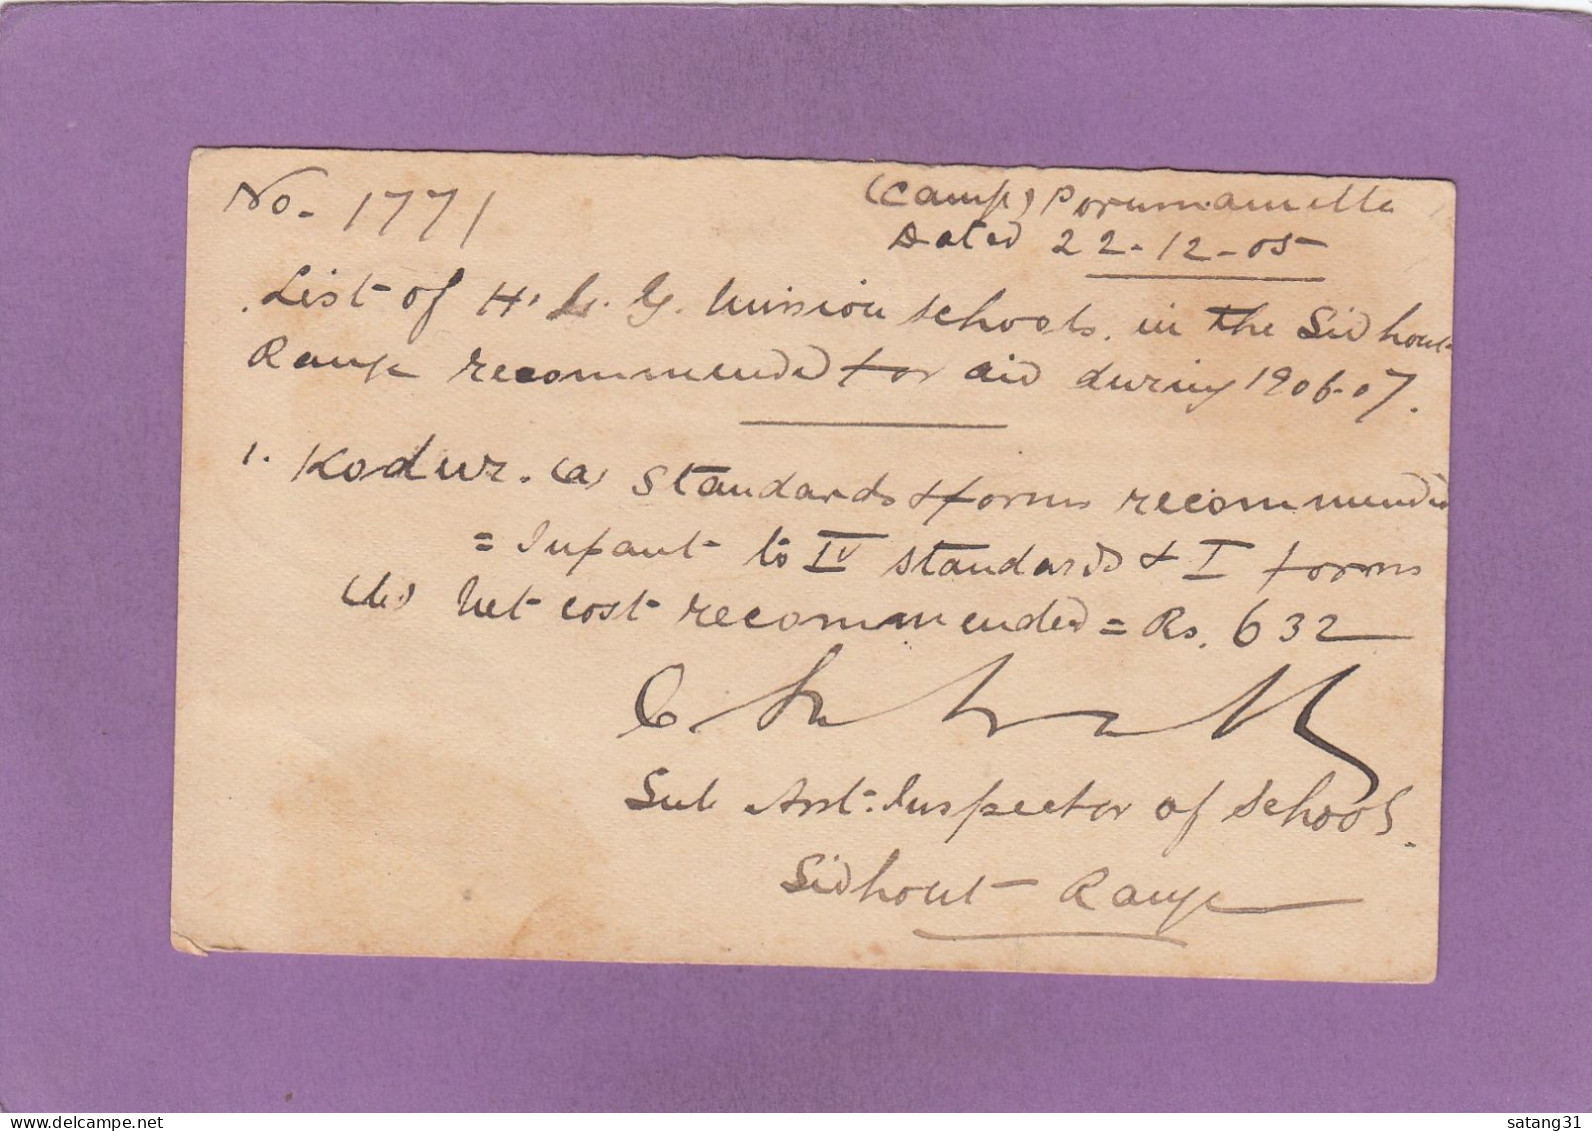 No. 1771
(Camp) Porumamilla
Dated 22-12-05
List of H. L. G. Mission schools in the Sidhout
Range recommended for aid during 1906-07.
1. Kodur. (a) Standards & forms recommended
= Infant to IV standards & I forms
(b) Net cost recommended = Rs. 632
Sub Asst. Inspector of Schools.
Sidhout Range
delcampe.net
satang31